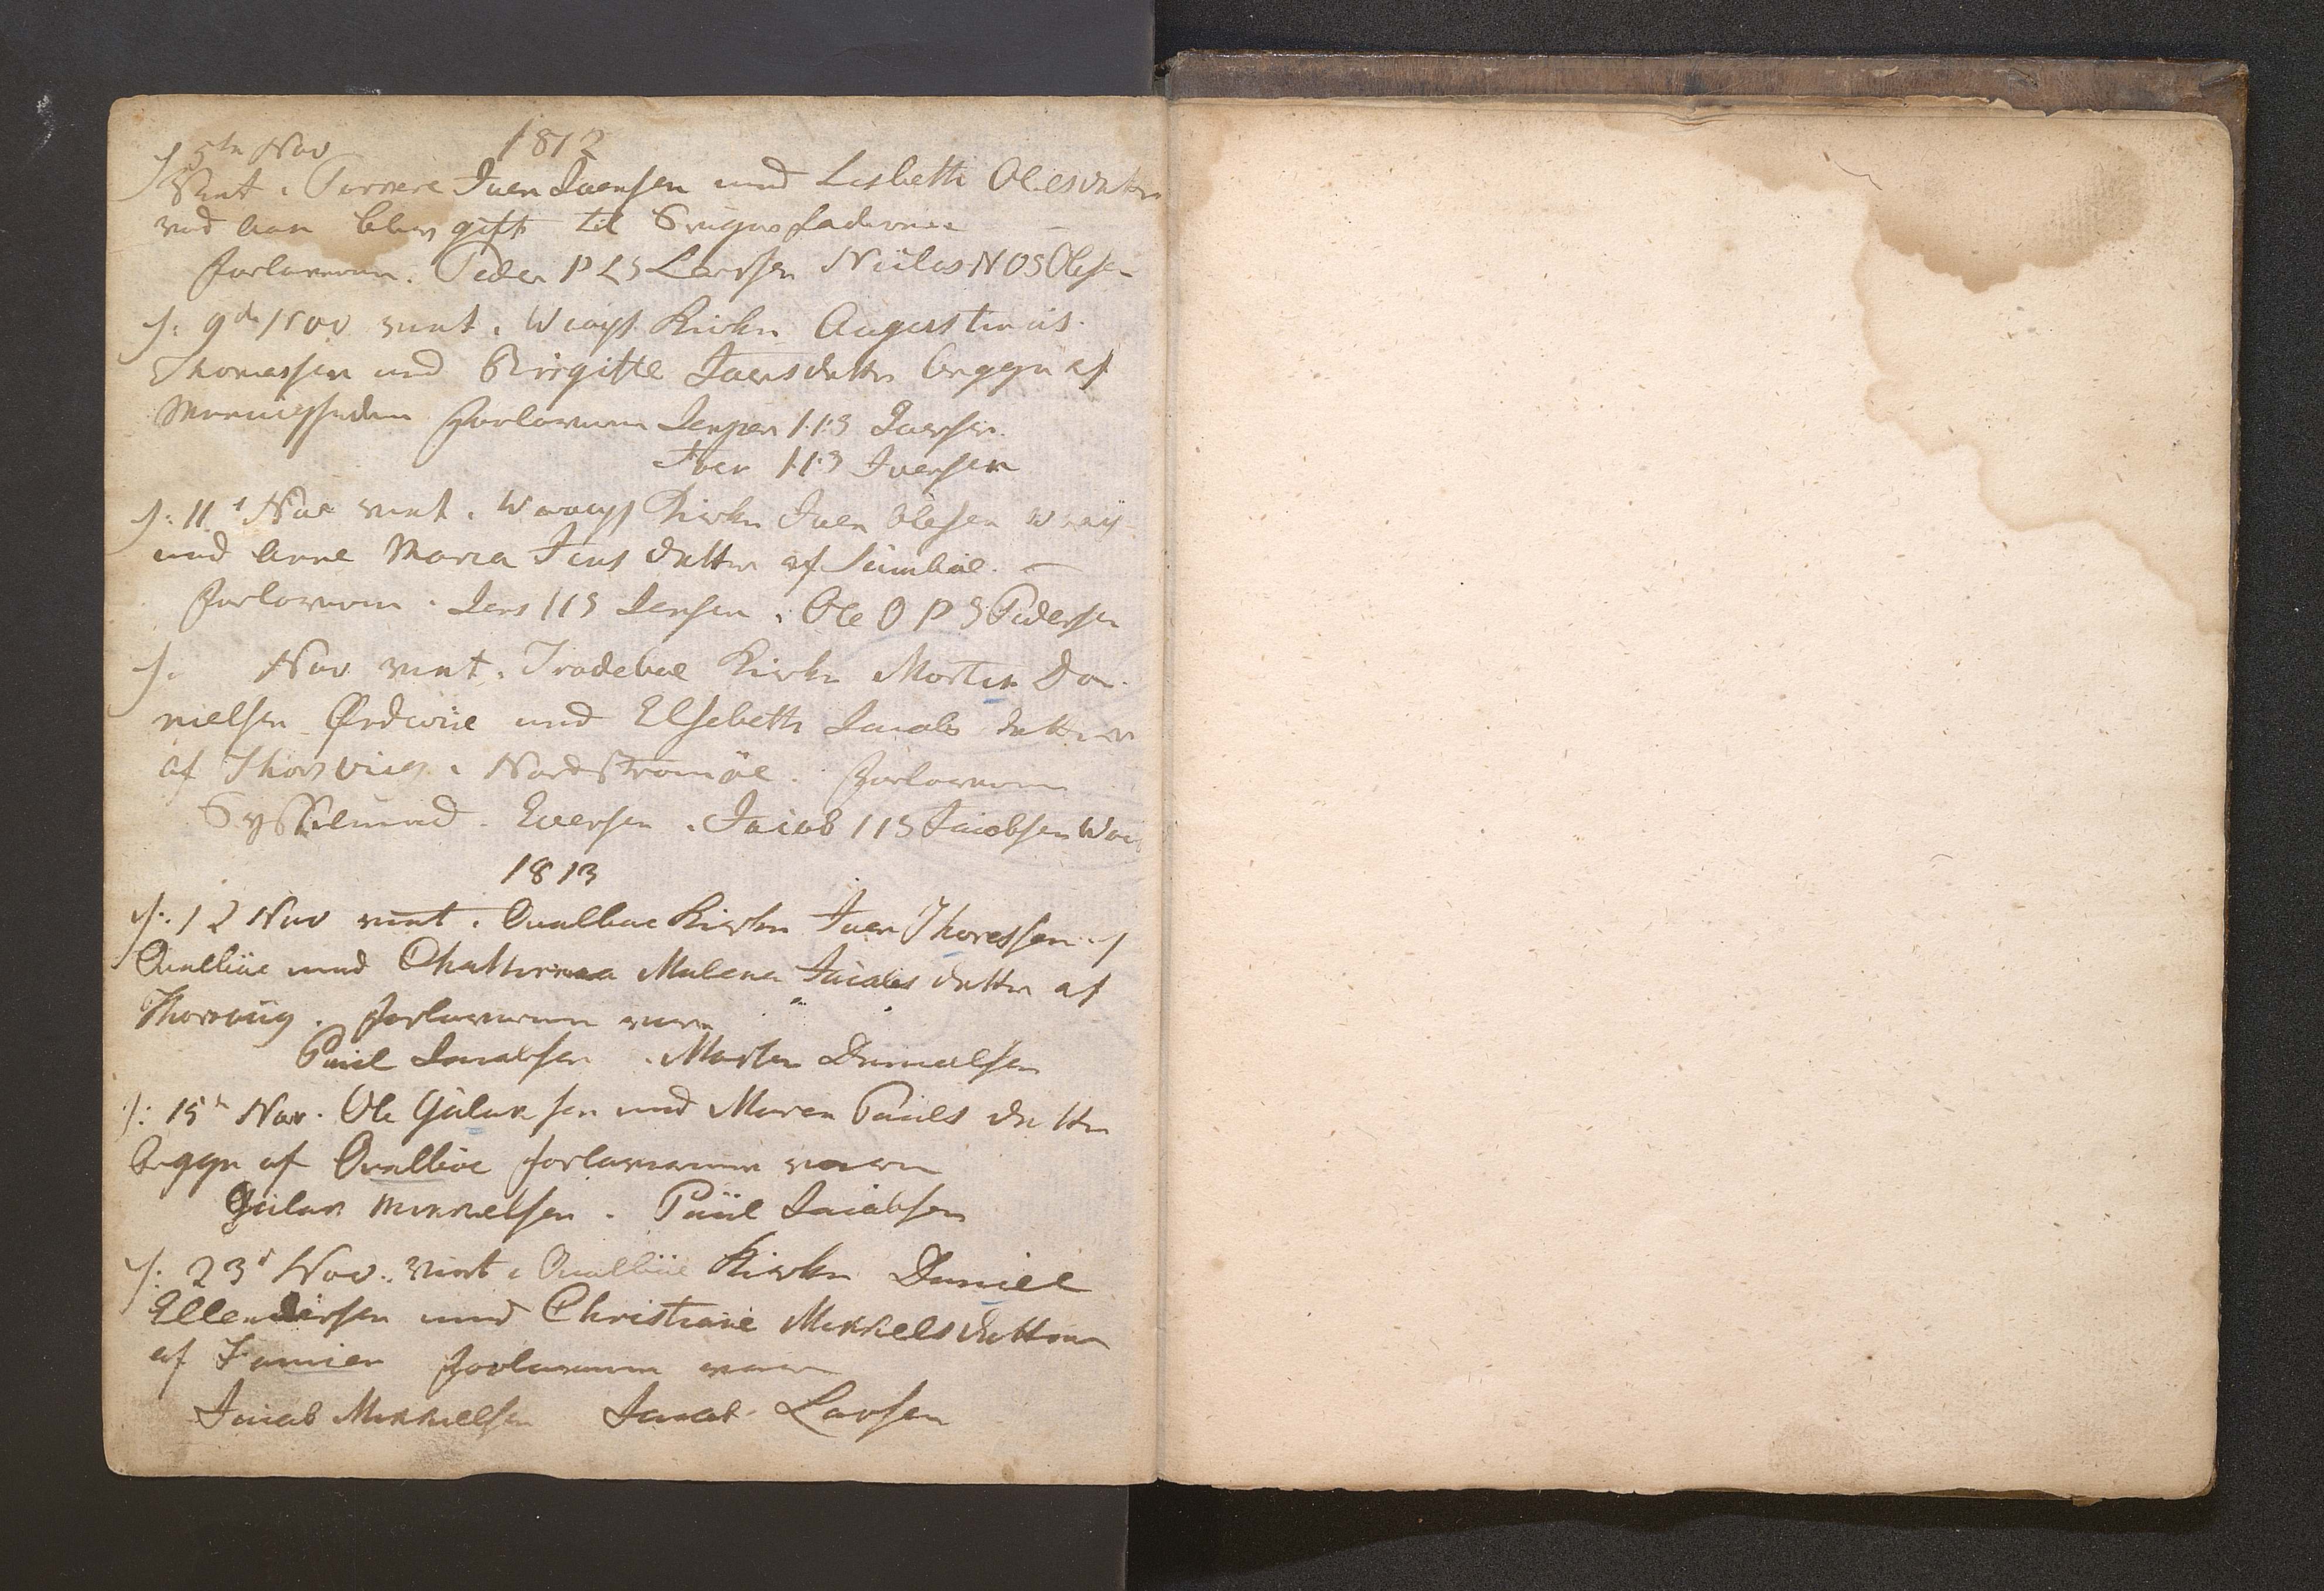 1812
5te Nov
viet. Iver Iversen med Lisbetti Olesdatter
ved han blev gift til
Forlovern. Peder PLS Larsen Niiles NOS Olsen
d: 9de Nov viet i Waays Kirke Augustinus
Thomassen med Birgitte Iversdatter begge af
Forloverne Jesper IIS Iversen
Iver IIS Iversen
d: 11te Nov viet i Waays Kirke Iver Olesen Waay
med Anne Maria Jens datter af Sumböe.
Forloverne. Jens IIS Jensen. Ole OPS Pedersen
d. Nov viet i Frodeboe Kirke Morten Da-
nielsen Ördevie med Elsebeth Jacobs datter
af Thorsvig i Nord Strömöe. Forloverne
Sysselmand Eversen. Jacob IIS Jacobsen
1813
d: 12 Nov viet i Qvalböe Kirke Iver Thoressen af
Qvalböe med Malena Jacobs datter af
Thorsvig. Forloverne vare
Paül Jacobsen. Morten Danielsen
d: 15de Nov. Ole Gülaksen med Maren Paüls datter
begge af Qvalböe forloverne vare
Gülak Mikkelsen. Paül Jacobsen
d: 23d Nov. viet i Qvalböe Kirke Daniel
Ellendersen med Christiane Mikkels datter
af Famien forloverne vare
Jacob Mikkelsen Jacob Larsen